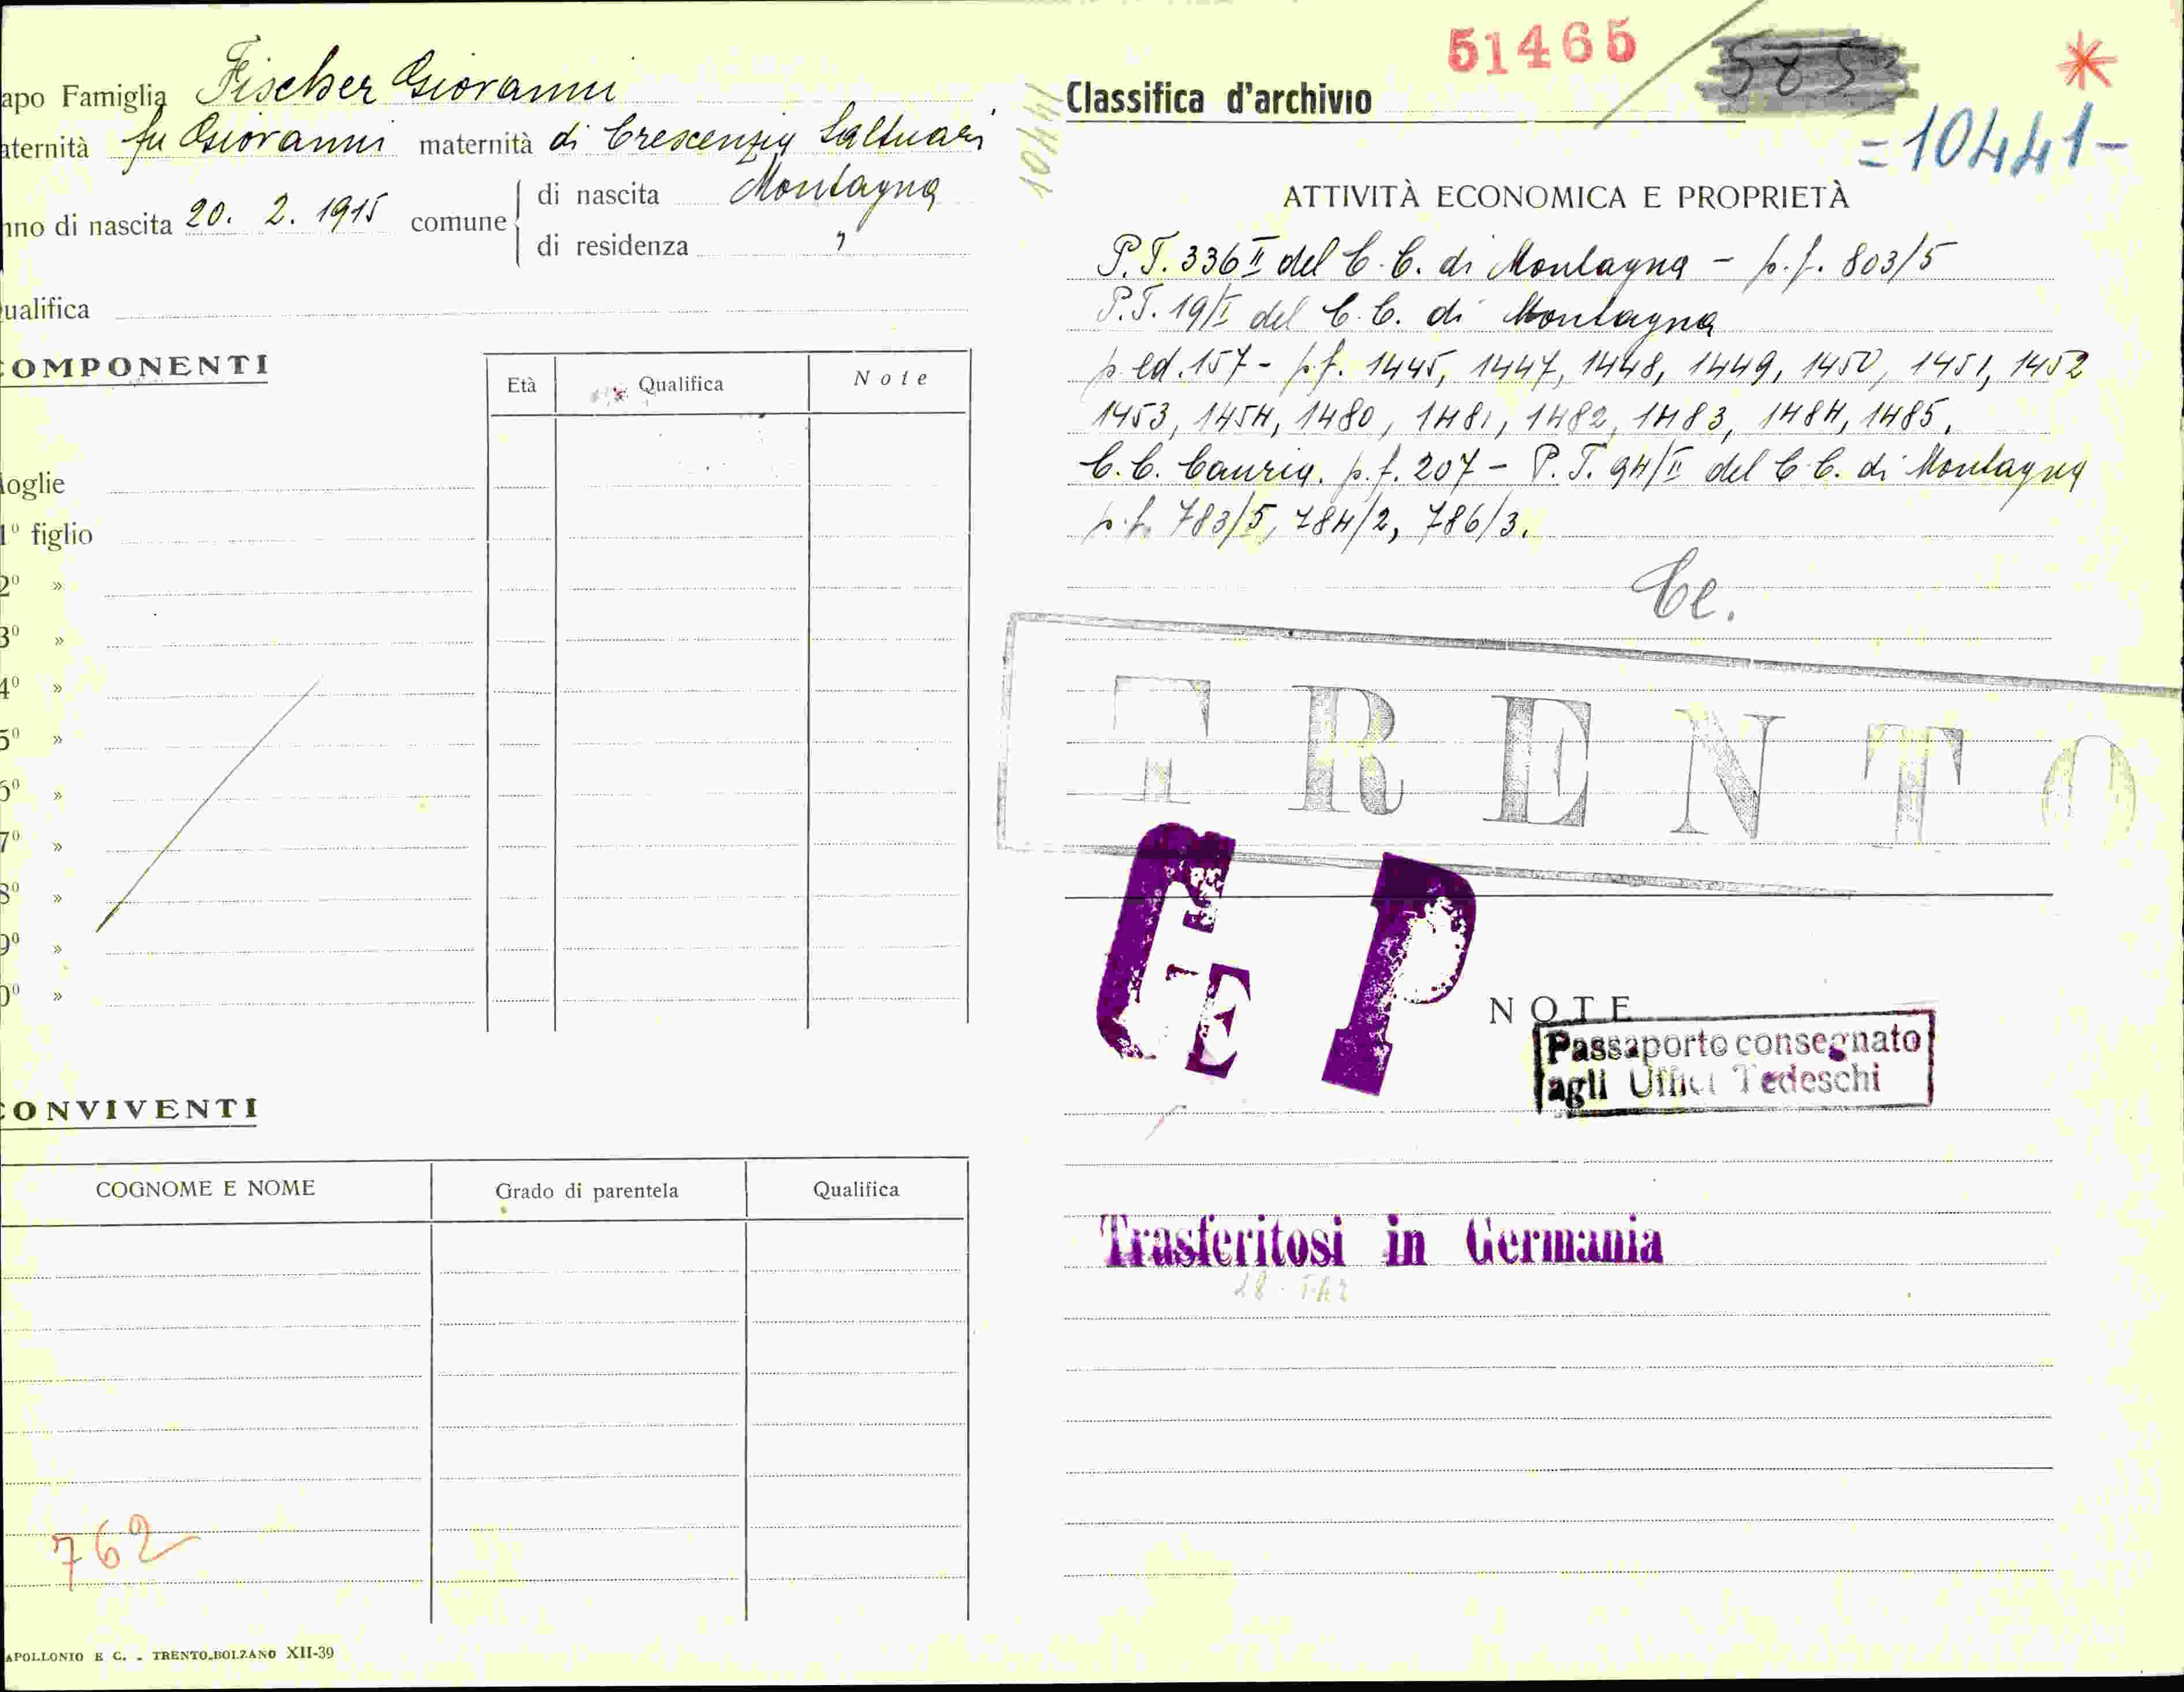 apo Famiglia Fischer Giovanni
aternità fu Giovanni maternità di Crescenzia Saltuari
nno di nascita 20. 2. 1915 comune di nascita Montagna
di residenza "
ualifica
OMPONENTI
Età Qualifica Note
oglie
1º figlio
2º »
3º »
4º »
5º »
6º »
7º »
8º »
9º »
0º »
ONVIVENTI
COGNOME E NOME Grado di parentela Qualifica
762
APOLLONIO E C. - TRENTO-BOLZANO XII-39
10441
51465
Classifica d'archivio
=10441-
ATTIVITÀ ECONOMICA E PROPRIETÀ
P.T. 336 II del C.C. di Montagna - p.f. 803/5
P.T. 19/I del C.C. di Montagna
p. ed. 157 - p.f. 1445, 1447, 1448, 1449, 1450, 1451, 1452
1453, 1454, 1480, 1481, 1482, 1483, 1484, 1485.
C.C. Cauria. p.f. 207 - P.T. 94/II del C.C. di Montagna
p.f. 783/5, 784/2, 786/3.
Ce.
TRENTO
GE P
NOTE
Passaporto consegnato
agli Uffici Tedeschi
Trasferitosi in Germania